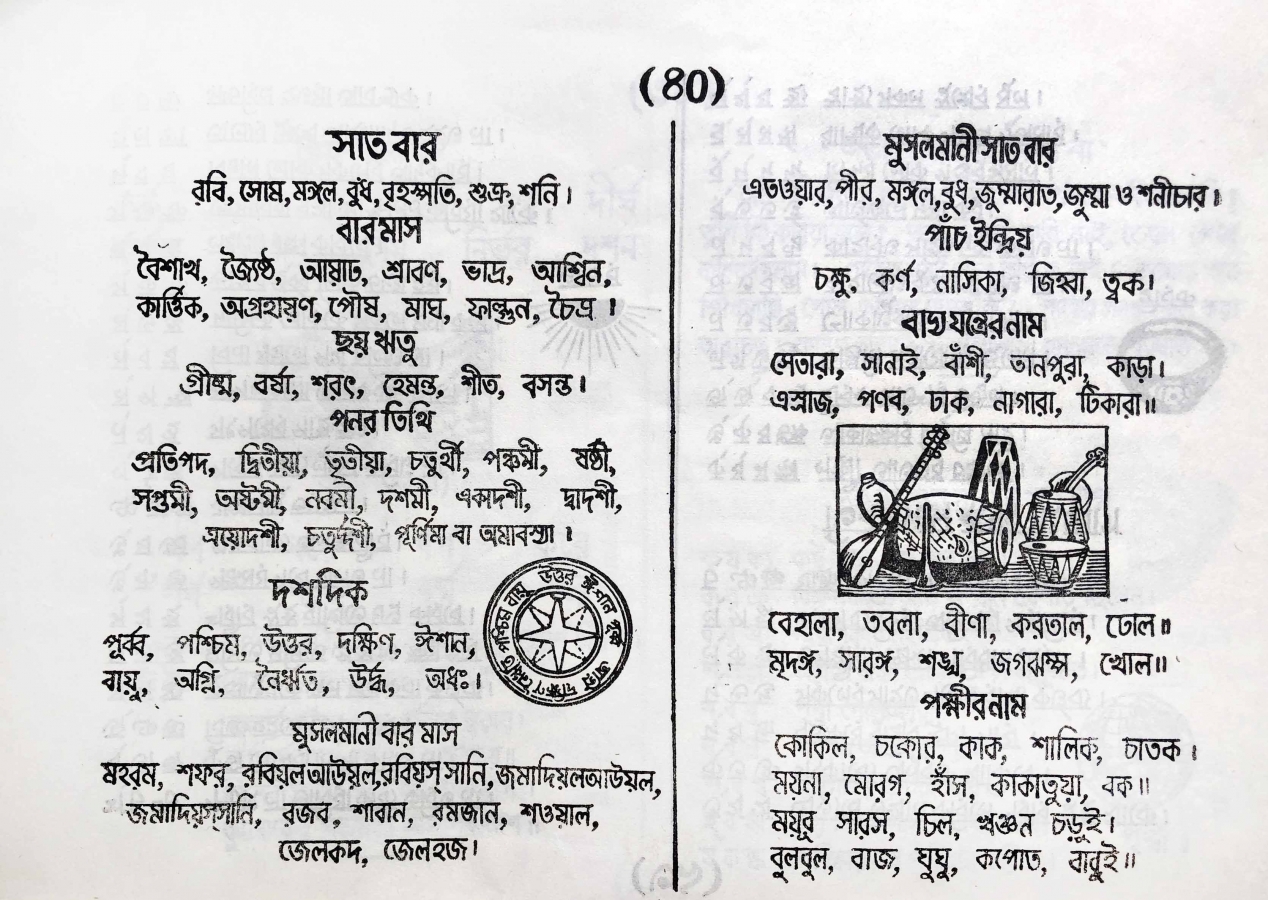 (৪০)
সাত বার
রবি, সোম, মঙ্গল, বুধ, বৃহস্পতি, শুক্র, শনি।
বার মাস
বৈশাখ, জ্যৈষ্ঠ, আষাঢ়, শ্রাবণ, ভাদ্র, আশ্বিন,
কার্ত্তিক, অগ্রহায়ণ, পৌষ, মাঘ, ফাল্গুন, চৈত্র ।
ছয় ঋতু
গ্রীষ্ম, বর্ষা, শরৎ, হেমন্ত, শীত, বসন্ত।
পনর তিথি
প্রতিপদ, দ্বিতীয়া, তৃতীয়া, চতুর্থী, পঞ্চমী, ষষ্ঠী,
সপ্তমী, অষ্টমী, নবমী, দশমী, একাদশী, দ্বাদশী,
ত্রয়োদশী, চতুর্দ্দশী, পূর্ণিমা বা অমাবস্যা ।
দশদিক
পূর্ব্ব, পশ্চিম, উত্তর, দক্ষিণ, ঈশান,
বায়ু, অগ্নি, নৈর্ঋত, উর্দ্ধ, অধঃ।
উত্তর ঈশান পূর্ব্ব অগ্নি দক্ষিণ নৈর্ঋত পশ্চিম বায়ু
মুসলমানী বার মাস
মহরম, শফর, রবিয়লআউয়ল, রবিয়স্ সানি, জমাদিয়লআউয়ল,
জমাদিয়স্সানি, রজব, শাবান, রমজান, শওয়াল,
জেলকদ, জেলহজ।
মুসলমানী সাত বার
এতওয়ার, পীর, মঙ্গল, বুধ, জুম্মারাত, জুম্মা ও শনীচার।
পাঁচ ইন্দ্রিয়
চক্ষু, কর্ণ, নাসিকা, জিহ্বা, ত্বক।
বাদ্য যন্ত্রের নাম
সেতারা, সানাই, বাঁশী, তানপুরা, কাড়া।
এস্রাজ, পণব, ঢাক, নাগারা, টিকারা॥
বেহালা, তবলা, বীণা, করতাল, ঢোল॥
মৃদঙ্গ, সারঙ্গ, শঙ্খ, জগঝম্প, খোল॥
পক্ষীর নাম
কোকিল, চকোর, কাক, শালিক, চাতক ।
ময়না, মোরগ, হাঁস, কাকাতুয়া, বক॥
ময়ূর সারস, চিল, খঞ্জন চড়ুই।
বুলবুল, বাজ, ঘুঘু, কপোত, বাবুই॥